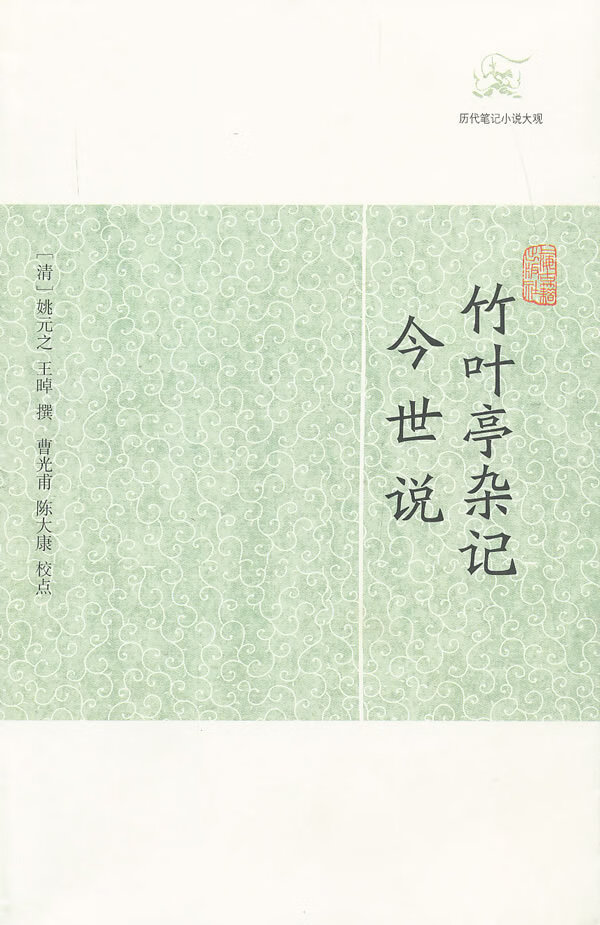 历代笔记小说大观
上海古籍出版社
竹叶亭杂记
今世说
［清］姚元之 王晫 撰 曹光甫 陈大康 校点